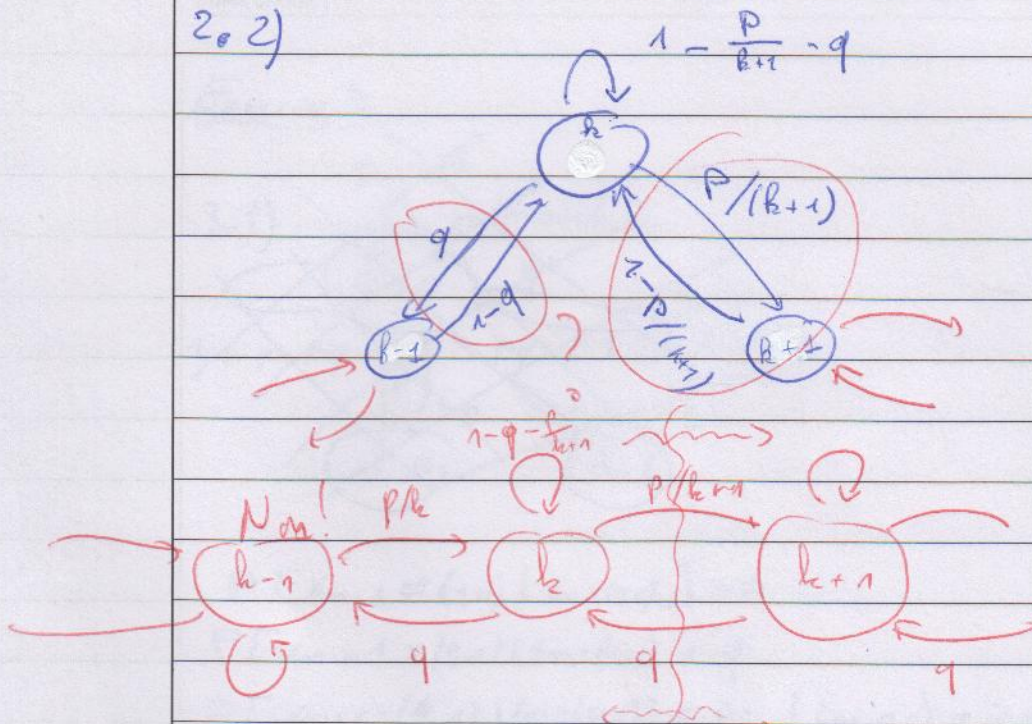 2.2)
1 - p/(k+1) - q
k
q
1-q
P/(k+1)
1-P/(k+1)
k-1
?
k+1
1-q-p/(k+1)
Non!
P/k
P/k+1
k-1
k
k+1
q
q
q